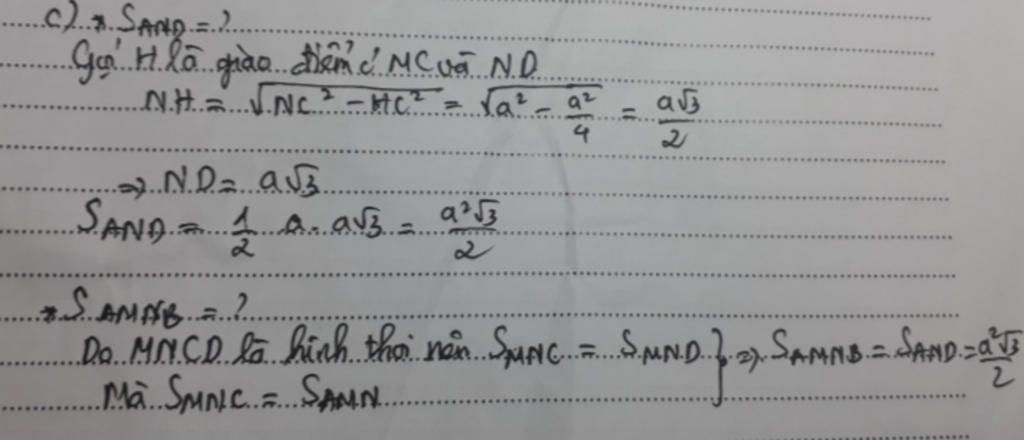 c) * S_AND = ?
Gọi H là giao điểm c' MC và ND
NH = √(NC² - HC²) = √(a² - a²/4) = a√3/2
⇒ ND = a√3
S_AND = 1/2 a. a√3 = a²√3/2
* S_AMNB = ?
Do MNCD là hình thoi nên S_MNC = S_MND } ⇒ S_AMNB = S_AND = a²√3/2
Mà S_MNC = S_AMN